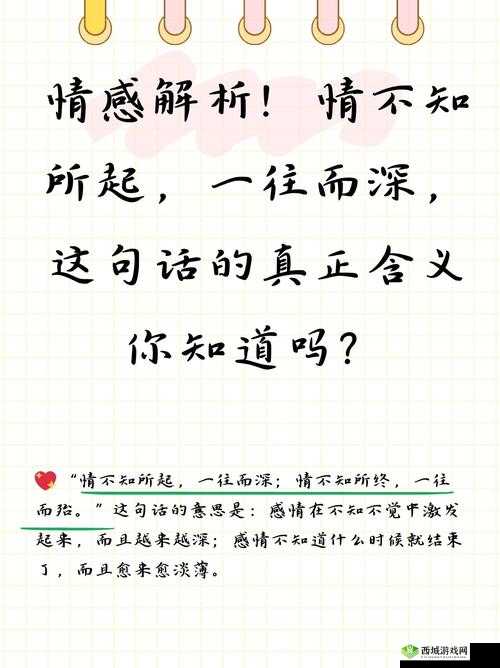 情感解析！情不知
所起，一往而深，
这句话的真正含义
你知道吗？
“情不知所起，一往而深；情不知所终，一往
而殆。”这句话的意思是：感情在不知不觉中激发
起来，而且越来越深；感情不知道什么时候就结束
了，而且愈来愈淡薄。
西城游戏网